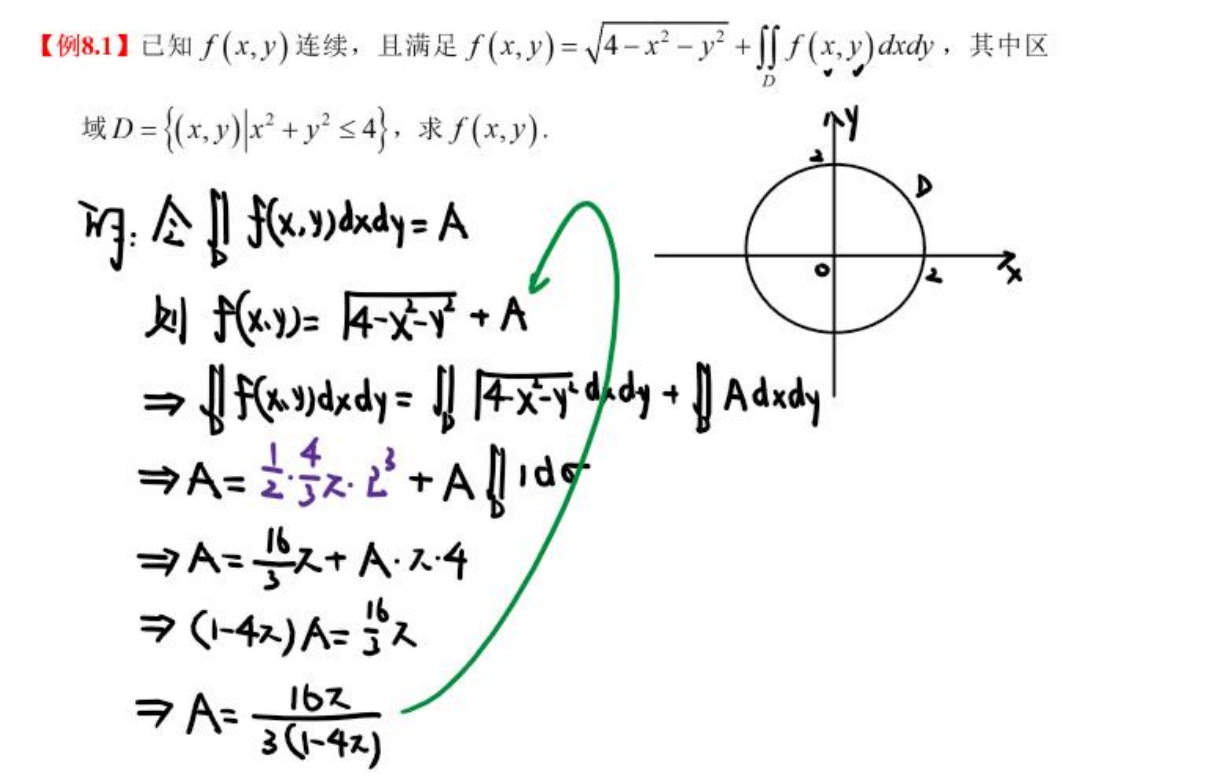 【例8.1】已知 f(x,y) 连续，且满足 f(x,y)=√(4−x²−y²)+∬_D f(x,y)dxdy，其中区
域 D={(x,y)|x²+y²≤4}，求 f(x,y).
y
2
D
0
2
x
解: 令 ∬_D f(x,y)dxdy = A
则 f(x,y)= √(4-x²-y²) + A
⇒ ∬_D f(x,y)dxdy = ∬_D √(4-x²-y²) dxdy + ∬_D A dxdy
⇒ A = 1/2 · 4/3 π · 2³ + A ∬_D 1 dσ
⇒ A = 16/3 π + A · π · 4
⇒ (1-4π) A = 16/3 π
⇒ A = 16π / 3(1-4π)